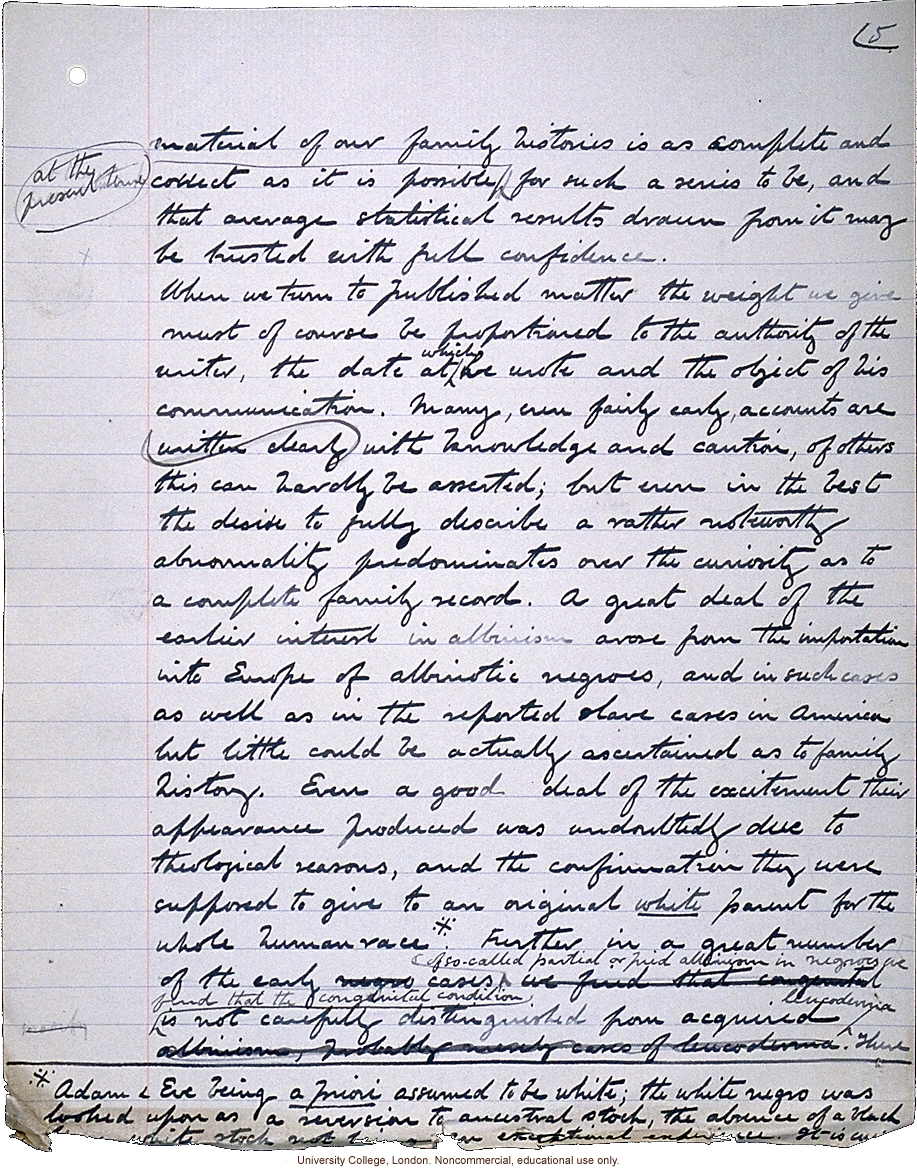 (5
material of our family histories is as complete and
at the
present time
correct as it is possible, for such a series to be, and
that average statistical results drawn from it may
be trusted with full confidence.
When we turn to published matter the weight we give
must of course be proportioned to the authority of the
writer, the date at which he wrote and the object of his
communication. Many, even fairly early, accounts are
written clearly with knowledge and caution, of others
this can hardly be asserted; but even in the best
the desire to fully describe a rather noteworthy
abnormality predominates over the curiosity as to
a complete family record. A great deal of the
earlier interest in albinism arose from the importation
into Europe of albinotic negroes, and in such cases
as well as in the reported slave cases in America
but little could be actually ascertained as to family
history. Even a good deal of the excitement their
appearance produced was undoubtedly due to
theological reasons, and the confirmation they were
supposed to give to an original white parent for the
whole human race*. Further in a great number
of so-called partial or pied albinism in negroes we
of the early negro cases, we find that congenital
find that the congenital condition
is not carefully distinguished from acquired leucoderma
albinism, probably merely cases of leucoderma. There
* Adam & Eve being a priori assumed to be white; the white negro was
looked upon as a reversion to ancestral stock, the absence of a black
white stock not exceptional experience. It is
University College, London. Noncommercial, educational use only.